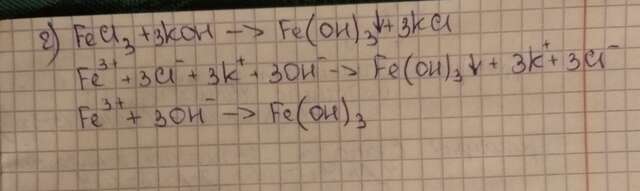 г) FeCl₃ + 3KOH —> Fe(OH)₃↓ + 3KCl
Fe³⁺ + 3Cl⁻ + 3K⁺ + 3OH⁻ —> Fe(OH)₃↓ + 3K⁺ + 3Cl⁻
Fe³⁺ + 3OH⁻ —> Fe(OH)₃